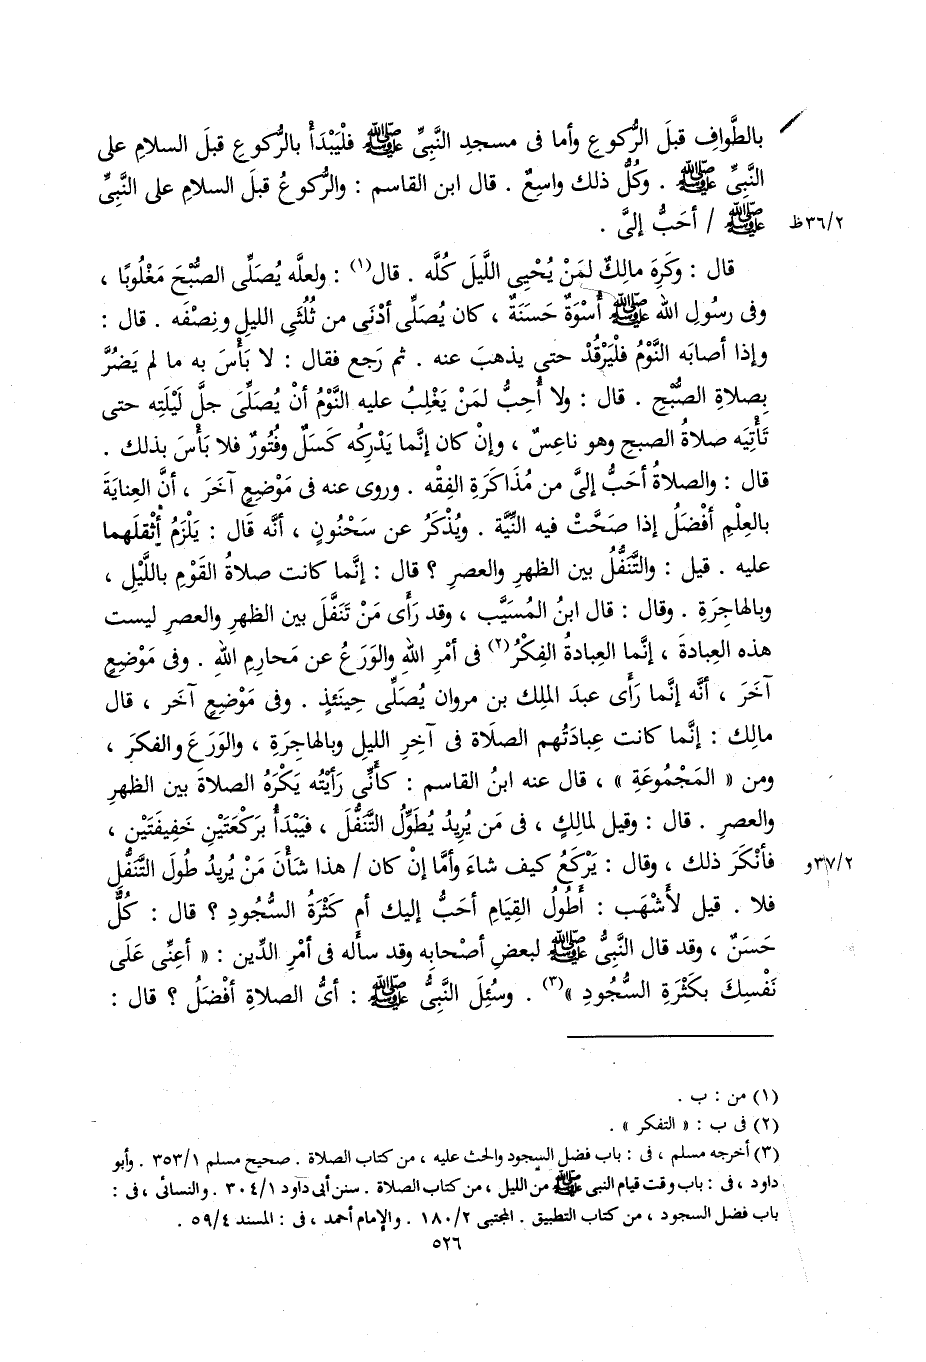 بالطَّوافِ قبلَ الرُّكوعِ وأما فى مسجدِ النَّبِىِّ ﷺ فلْيَبْدَأْ بالرُّكوعِ قبلَ السلامِ على
النَّبِىِّ ﷺ . وكُلُّ ذلك واسِعٌ . قال ابن القاسم : والرُّكوعُ قبلَ السلامِ على النَّبِىِّ
٣٦/٢ظ ﷺ / أحَبُّ إلىَّ .
قال : وكَرِهَ مالِكٌ لمَنْ يُحْيِى اللَّيلَ كُلَّه . قال(١) : ولعلَّه يُصَلِّى الصُّبْحَ مَغْلُوبًا ،
وفى رسُولِ الله ﷺ أُسْوَةٌ حَسَنَةٌ ، كان يُصَلِّى أدْنَى من ثُلُثَىِ الليلِ ونِصْفَه . قال :
وإذا أصابَه النَّوْمُ فلْيَرْقُدْ حتى يذهبَ عنه . ثم رَجع فقال : لا بَأْسَ به ما لم يَضُرَّ
بِصلاةِ الصُّبْحِ . قال : ولا أُحِبُّ لمَنْ يَغْلِبُ عليه النَّوْمُ أنْ يُصَلِّىَ جلَّ لَيْلَتِه حتى
تَأْتِيَه صلاةُ الصبحِ وهو ناعِسٌ ، وإنْ كان إنَّما يَدْرِكُه كَسَلٌ وفُتُورٌ فلا بَأْسَ بذلك .
قال : والصلاةُ أحَبُّ إلىَّ من مُذَاكَرَةِ الفِقْه . وروى عنه فى مَوْضِعٍ آخَرَ ، أنَّ العِنايَةَ
بالعِلْمِ أفْضَلُ إذا صَحَّتْ فيه النِّيَّة . ويُذْكَرُ عن سَحْنُونٍ ، أنَّه قَال : يَلْزَمُ أثْقلَهما
عليه . قيل : والتَّنَفُّلُ بين الظهرِ والعصرِ ؟ قال : إنَّما كانت صلاةُ القَوْمِ باللَّيْلِ ،
وبالهَاجِرَةِ . وقال : قال ابنُ المُسَيَّب ، وقد رَأَى مَنْ تَنَفَّلَ بين الظهرِ والعصرِ ليست
هذه العِبادةَ ، إنَّما العِبادةُ الفِكْرُ(٢) فى أمْرِ اللهِ والوَرَعُ عن مَحارِمِ اللهِ . وفى مَوْضِعٍ
آخَرَ ، أنَّه إنَّما رَأَى عبدَ الملِك بن مروان يُصَلِّى حِينَئذٍ . وفى مَوْضِعٍ آخر ، قال
مالِك : إنَّما كانت عِبادَتُهم الصلاَة فى آخِرِ الليلِ وبالهاجِرَةِ ، والوَرَعَ والفكرَ ،
ومن « المَجْمُوعَةِ » ، قال عنه ابنُ القاسم : كأنِّى رَأيْتُه يَكْرَهُ الصلاةَ بين الظهرِ
والعصرِ . قال : وقيل لمالِكٍ ، فى مَن يُرِيدُ يُطَوِّلُ التَّنَفُّلَ ، فيَبْدأُ بِرَكْعَتَيْنِ خَفِيفَتَيْن ،
٣٧/٢و فأنْكَرَ ذلك ، وقال : يَرْكَعُ كيف شاءَ وأمَّا إنْ كان / هذا شَأْنَ مَنْ يُرِيدُ طُولَ التَّنَفُّلِ
فلا . قيل لأَشْهَب : أَطُولُ القِيَامِ أحَبُّ إليك أم كَثْرَةُ السُّجُودِ ؟ قال : كُلٌّ
حَسَنٌ ، وقد قال النَّبِىُّ ﷺ لبعضِ أصْحابِه وقد سأَله فى أمْرِ الدِّين : « أعِنِّى عَلَى
نَفْسِكَ بكَثْرَةِ السُّجُودِ »(٣) . وسُئِلَ النَّبِىُّ ﷺ : أىُّ الصلاةِ أفْضَلُ ؟ قال :
(١) من : ب .
(٢) فى ب : « التفكر » .
(٣) أخرجه مسلم ، فى : باب فضل السجود والحث عليه ، من كتاب الصلاة . صحيح مسلم ٣٥٣/١ . وأبو
داود ، فى : باب وقت قيام النبى ﷺ من الليل ، من كتاب الصلاة . سنن أبى داود ٣٠٤/١ . والنسائى ، فى :
باب فضل السجود ، من كتاب التطبيق . المجتبى ١٨٠/٢ . والإمام أحمد ، فى : المسند ٥٩/٤ .
٥٢٦